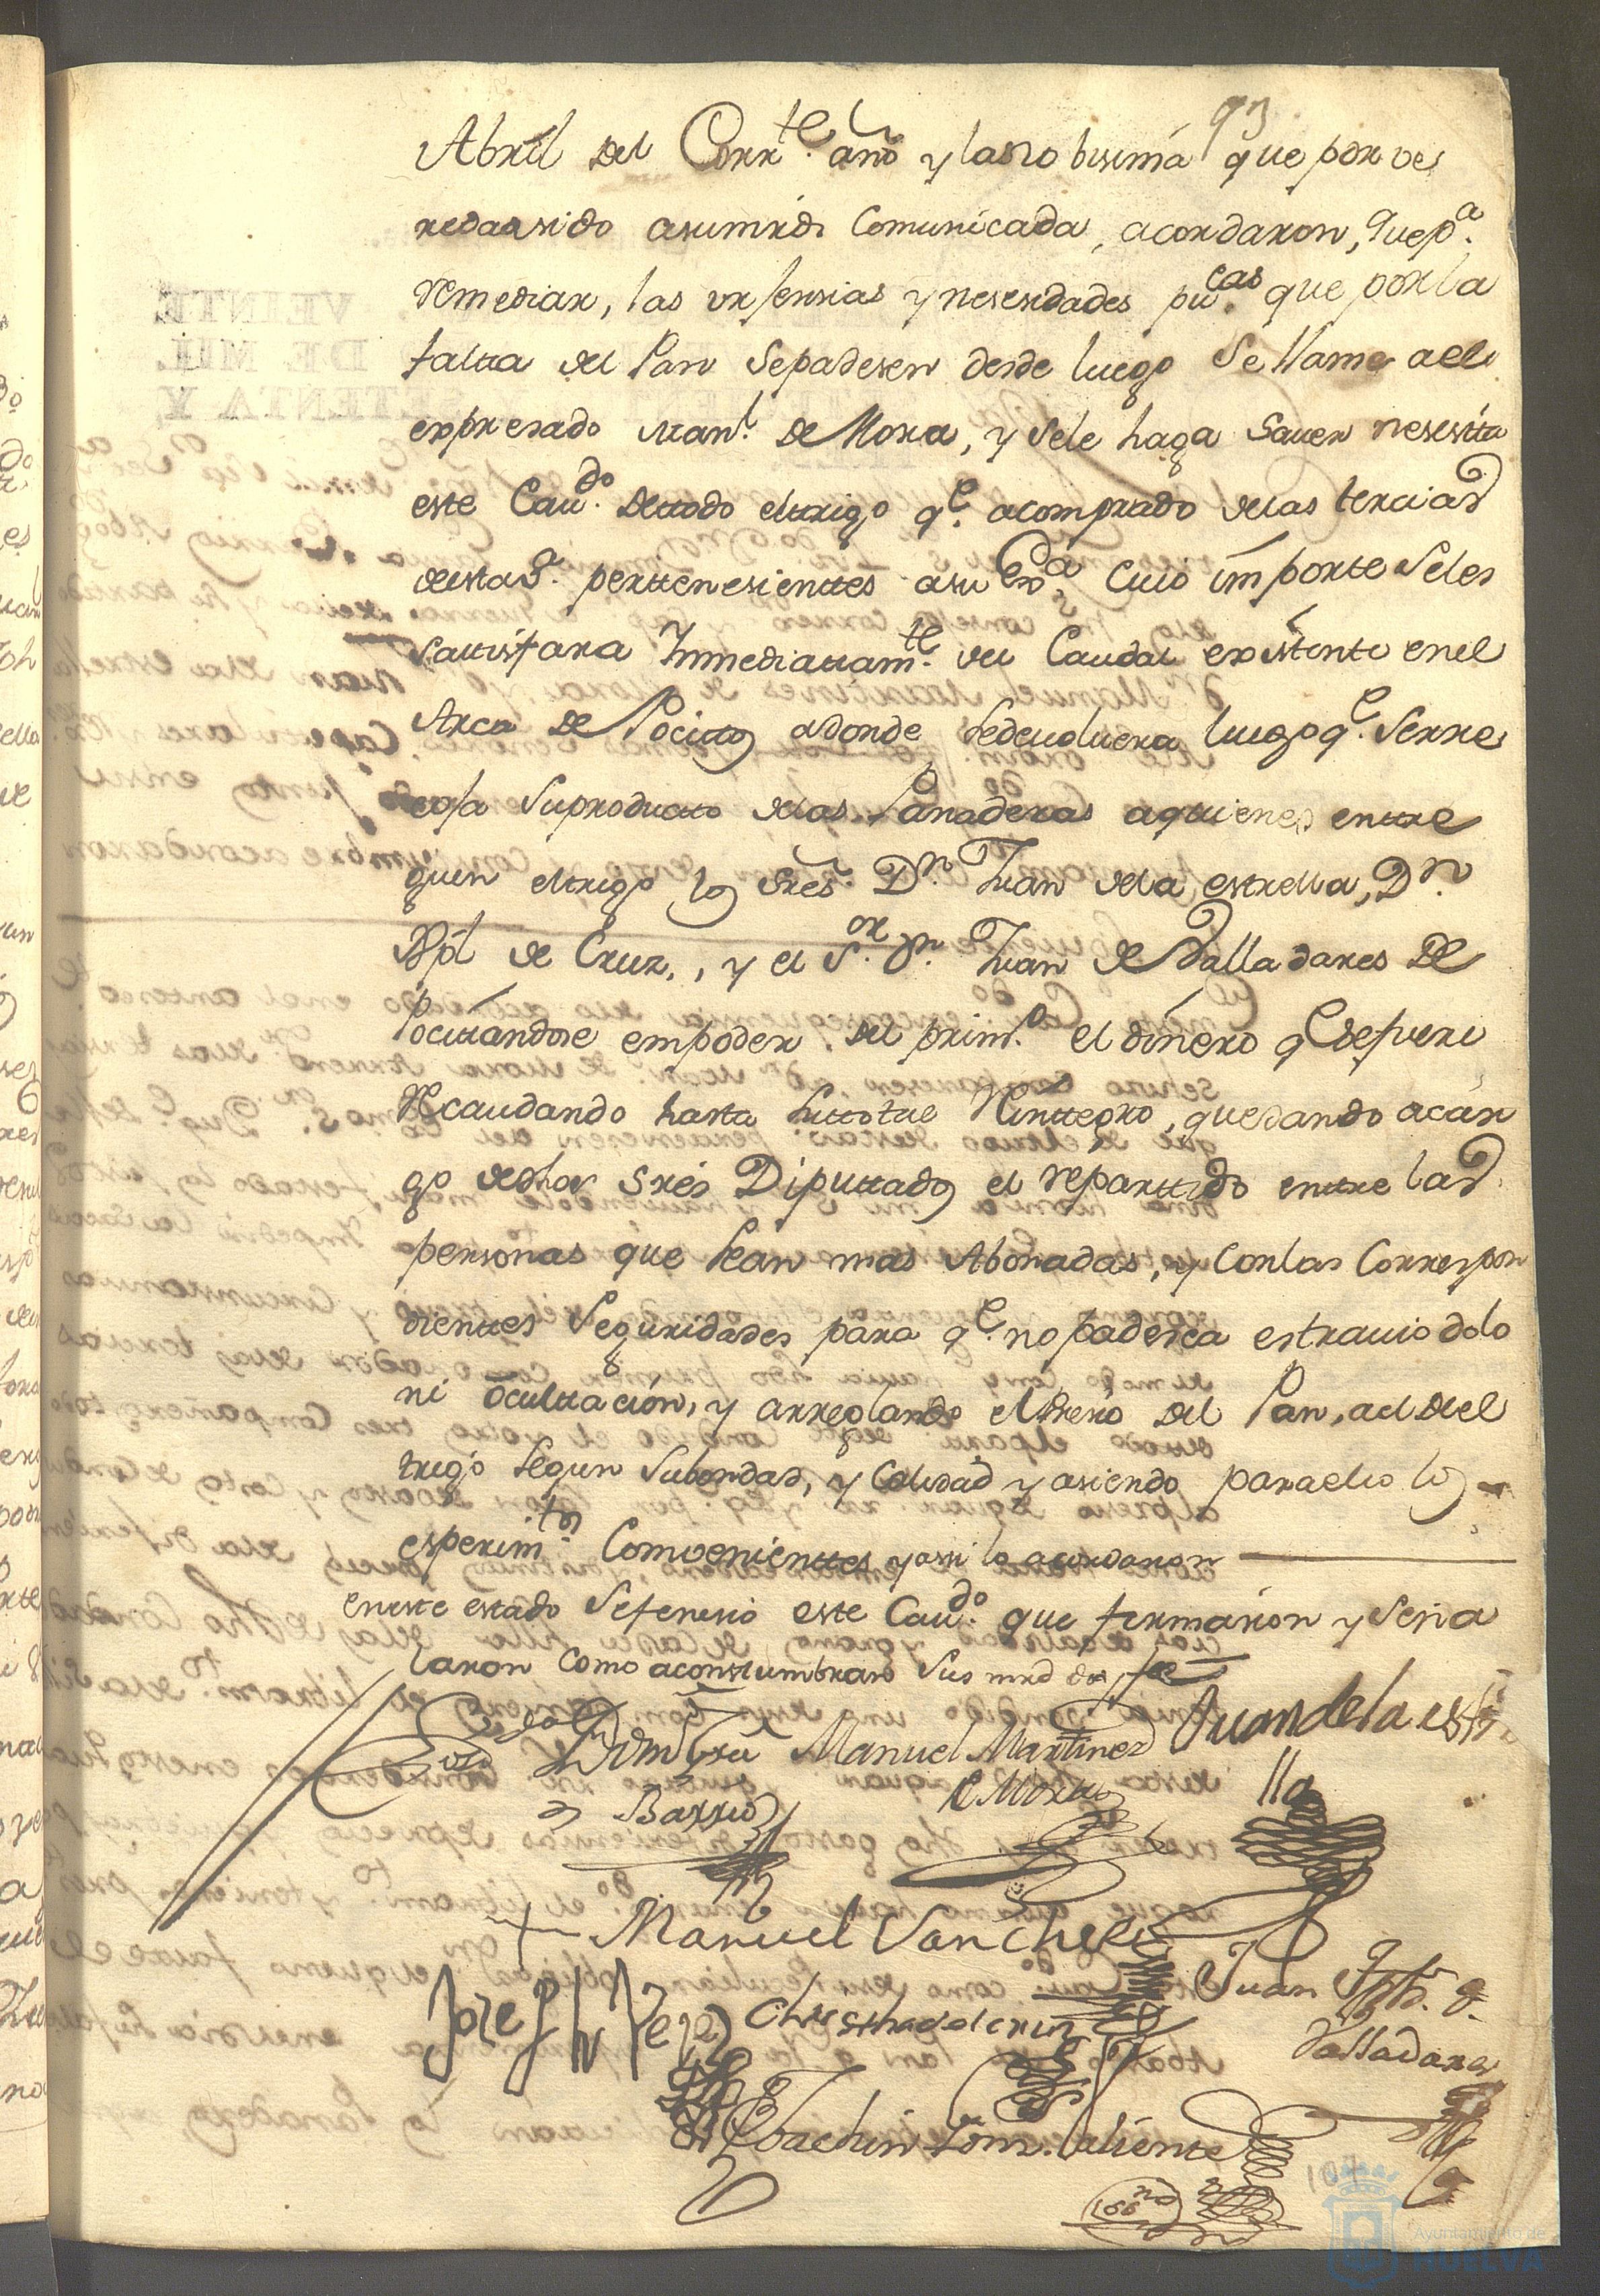 93
Abril del Corrte. año y la nobisima que por ve
redaasido asumrds Comunicada, acordaron, que pa.
remediar, las urgensias y nesesidades pucas. que por la
falta del Pan sepadesen desde luego se llame ael
expresado Manl. de Mora, y sele haga saver nesesita
este Cavdo. detodo eltrigo qe. acomprado delas tercias
desta va. perttenesienttes asu Exa. cuio importe seles
sattisfara Inmediattamte. del Caudal existente enel
Arca de Pocittos adonde sedevolvera luego qe. serre
coja suproducto delas Panaderas aquienes entre
guen eltrigo los sres. Dn. Juan dela estrella, Dn.
Xpl de Cruz,, y el Sor. Dn. Juan de Valladares De
pocitandose empoder del primo. el dinero qe sefuere
Recaudando hasta sutotal Reinttegro, quedando acar
go dedhos sres Diputtados el reparttido entre las
personas que sean mas Abonadas, y conlas Correspon
dienttes seguridades para qe. no padesca estravio dolo
ni ocultacion, y arreglando elpresio del Pan, al del
trigo segun subondad, y calidad y asiendo paraello los
esperimtos. Convenienttes, yassi lo acordaron
eneste estado sefenesio este Cavdo. que firmaron y seña
laron como acostumbran sus mrds doy fee
Manuel Martinez
de Mora
Juan de la estre
lla
Barrio
Manuel Sanches
Joseph Perez
Christhoval de cruz
Juan Apto. de
Valladares
Joachin Dom. Caliente
104
Ayuntamiento de
HUELVA